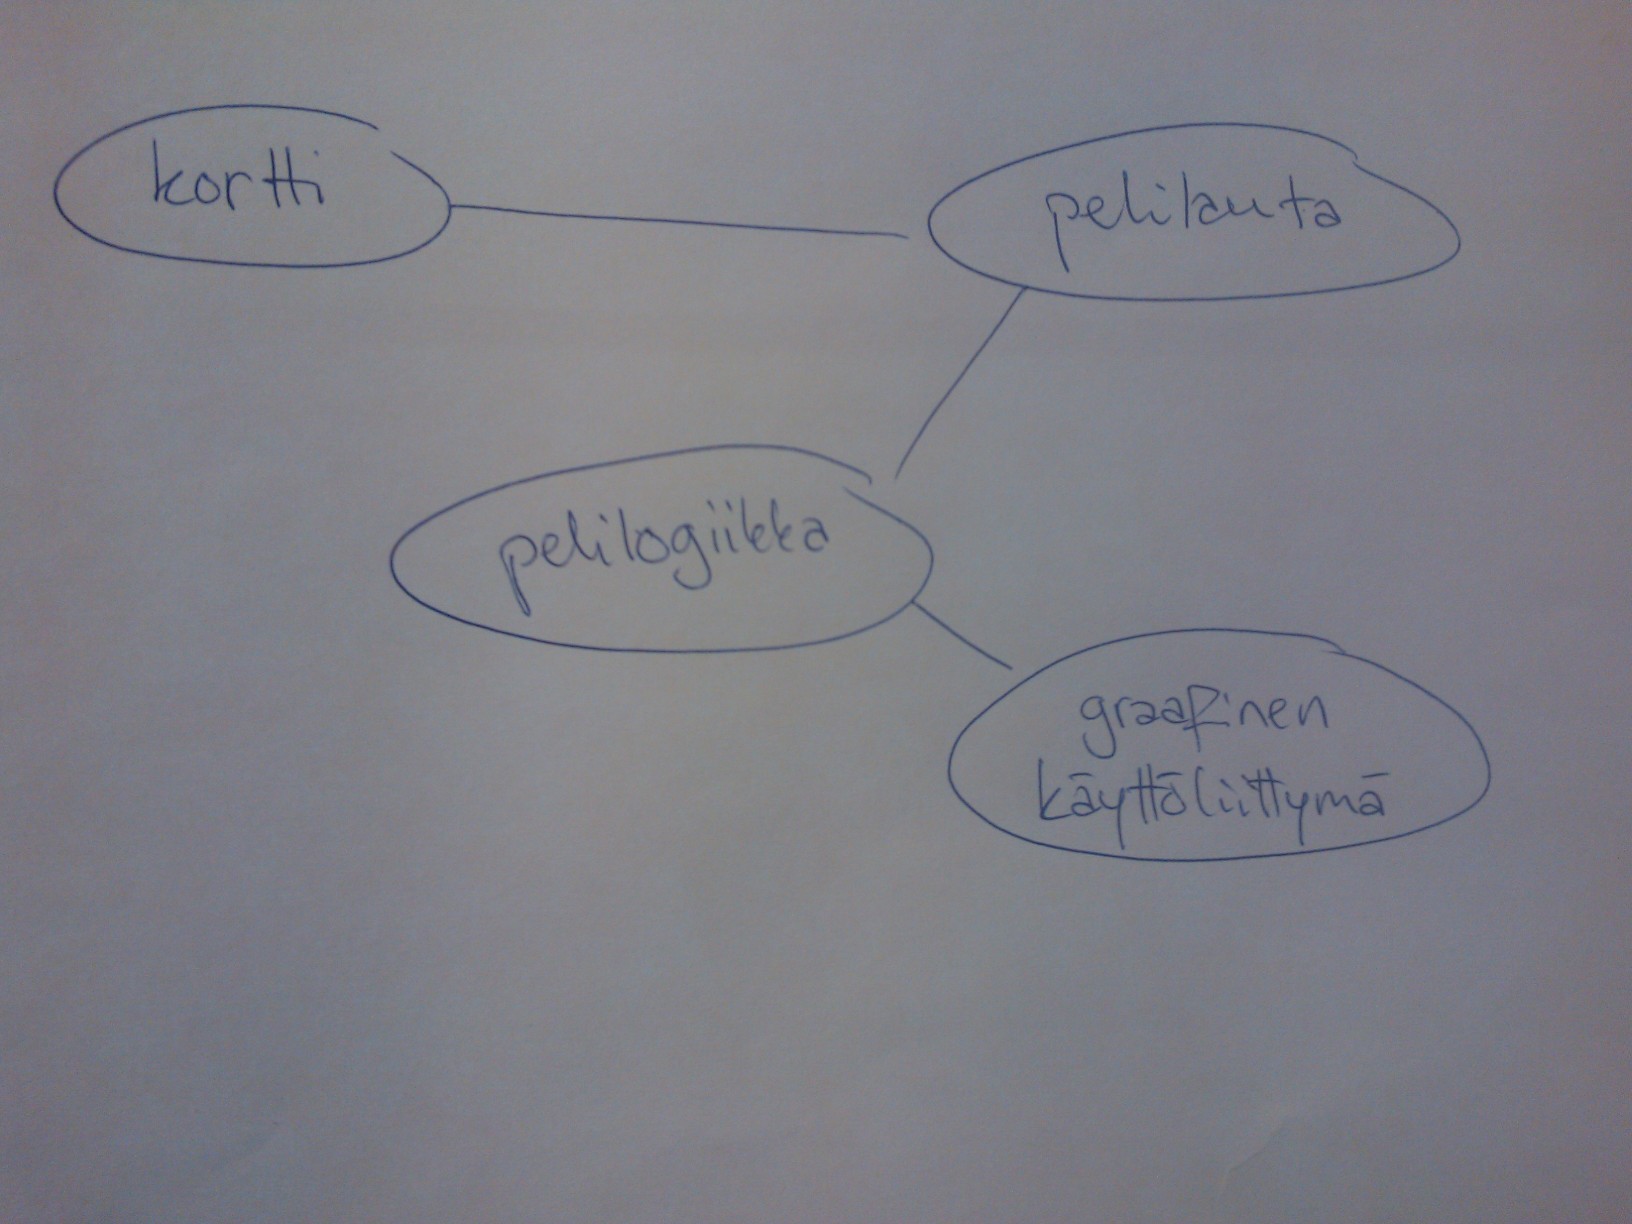 kortti
pelilauta
pelilogiikka
graafinen
käyttöliittymä